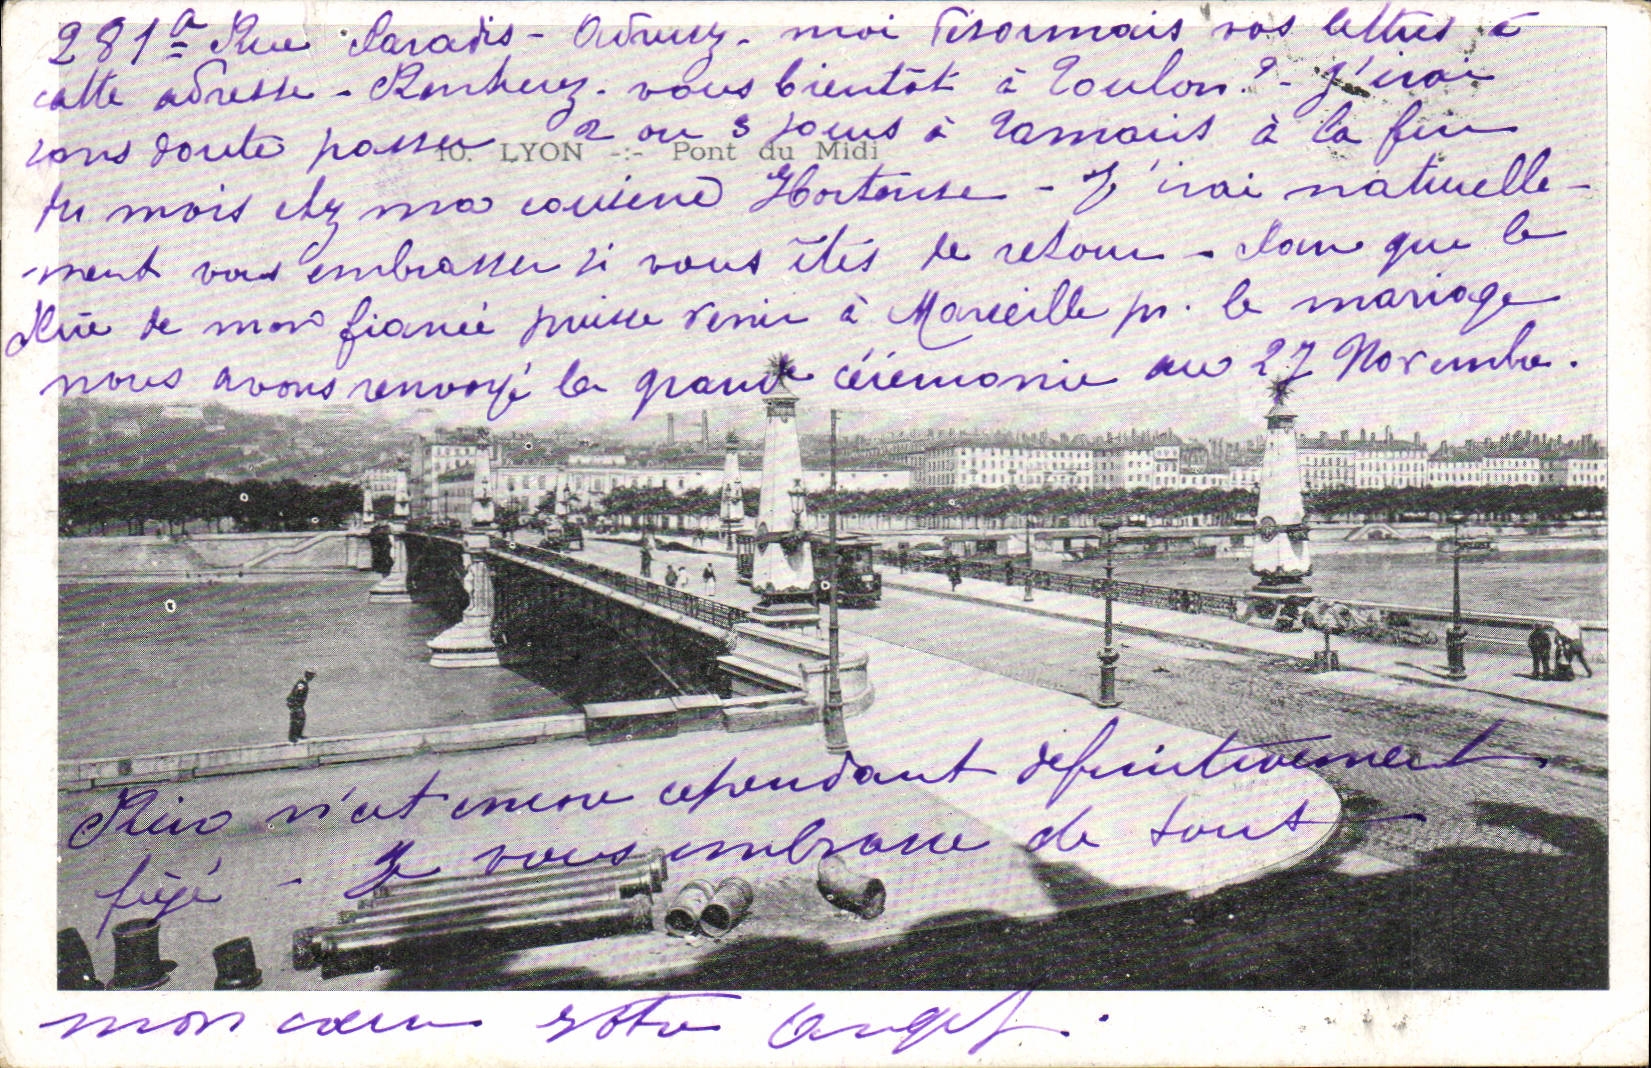 281a Rue Paradis - Adressez - moi désormais vos lettres à
cette adresse - Rentrez - vous bientôt à Toulon? - J'irai
sans doute passer 2 ou 3 jours à Tamaris à la fin
10. LYON -:- Pont du Midi
du mois chez ma cousine Hortense - J'irai naturelle-
ment vous embrasser si vous êtes de retour - Pour que le
Père de mon fiancé puisse venir à Marseille pr. le mariage
nous avons renvoyé la grande cérémonie au 27 Novembre.
Rien n'est encore cependant definitivement
fixé - Je vous embrasse de tout
mon cœur votre